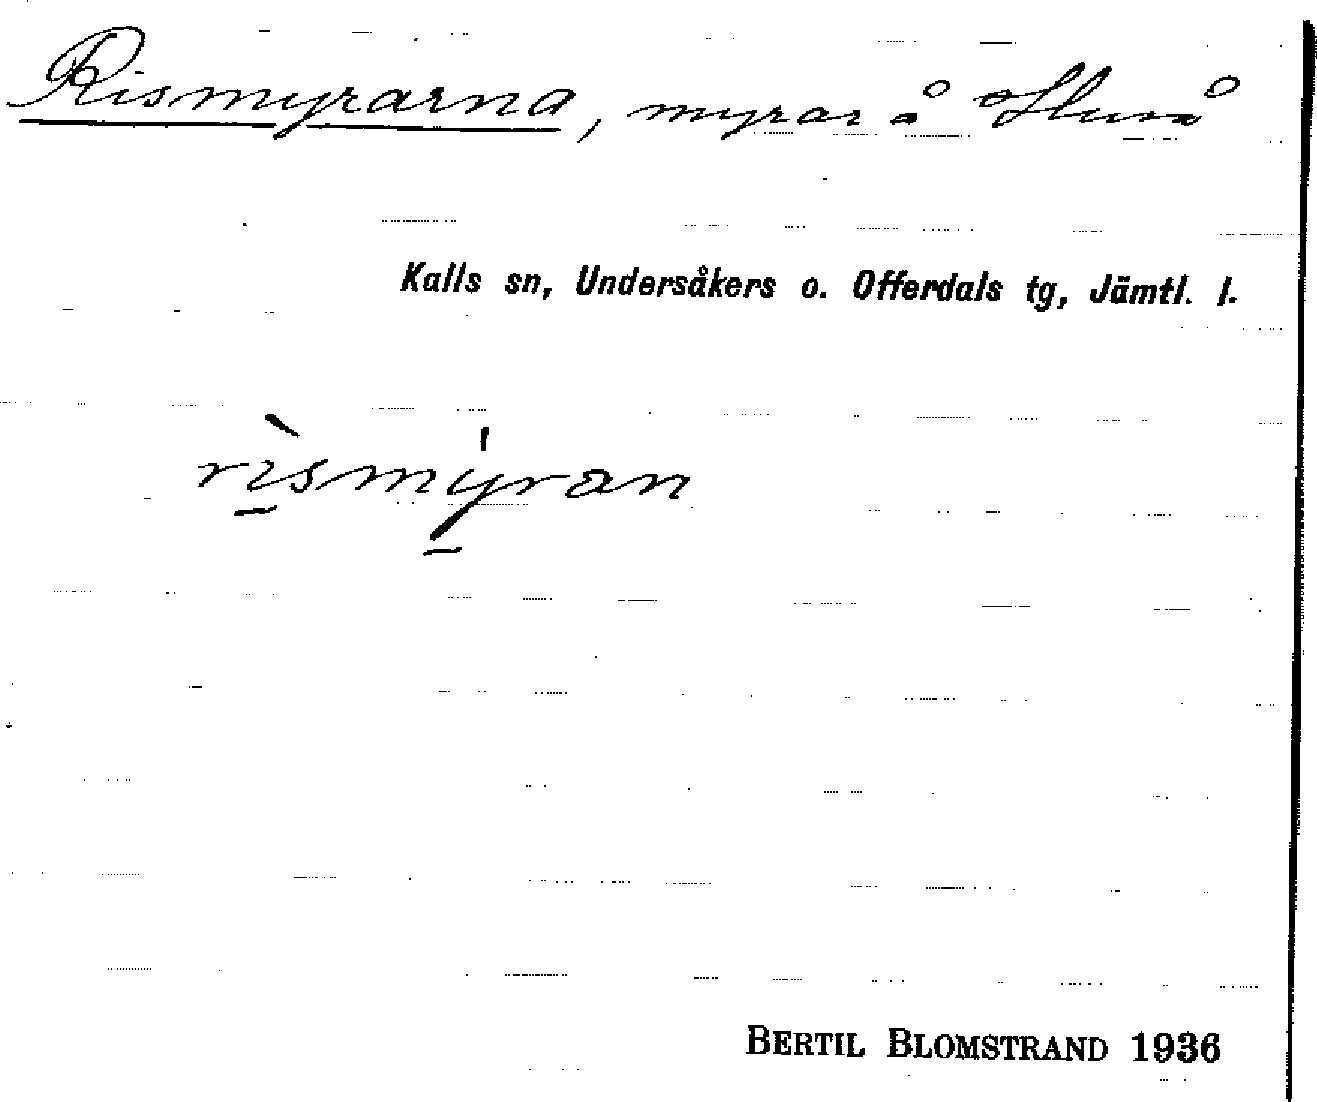 Rismyrarna, myrar å Huså
Kalls sn, Undersåkers o. Offerdals tg, Jämtl. l.
rìsmýran
BERTIL BLOMSTRAND 1936